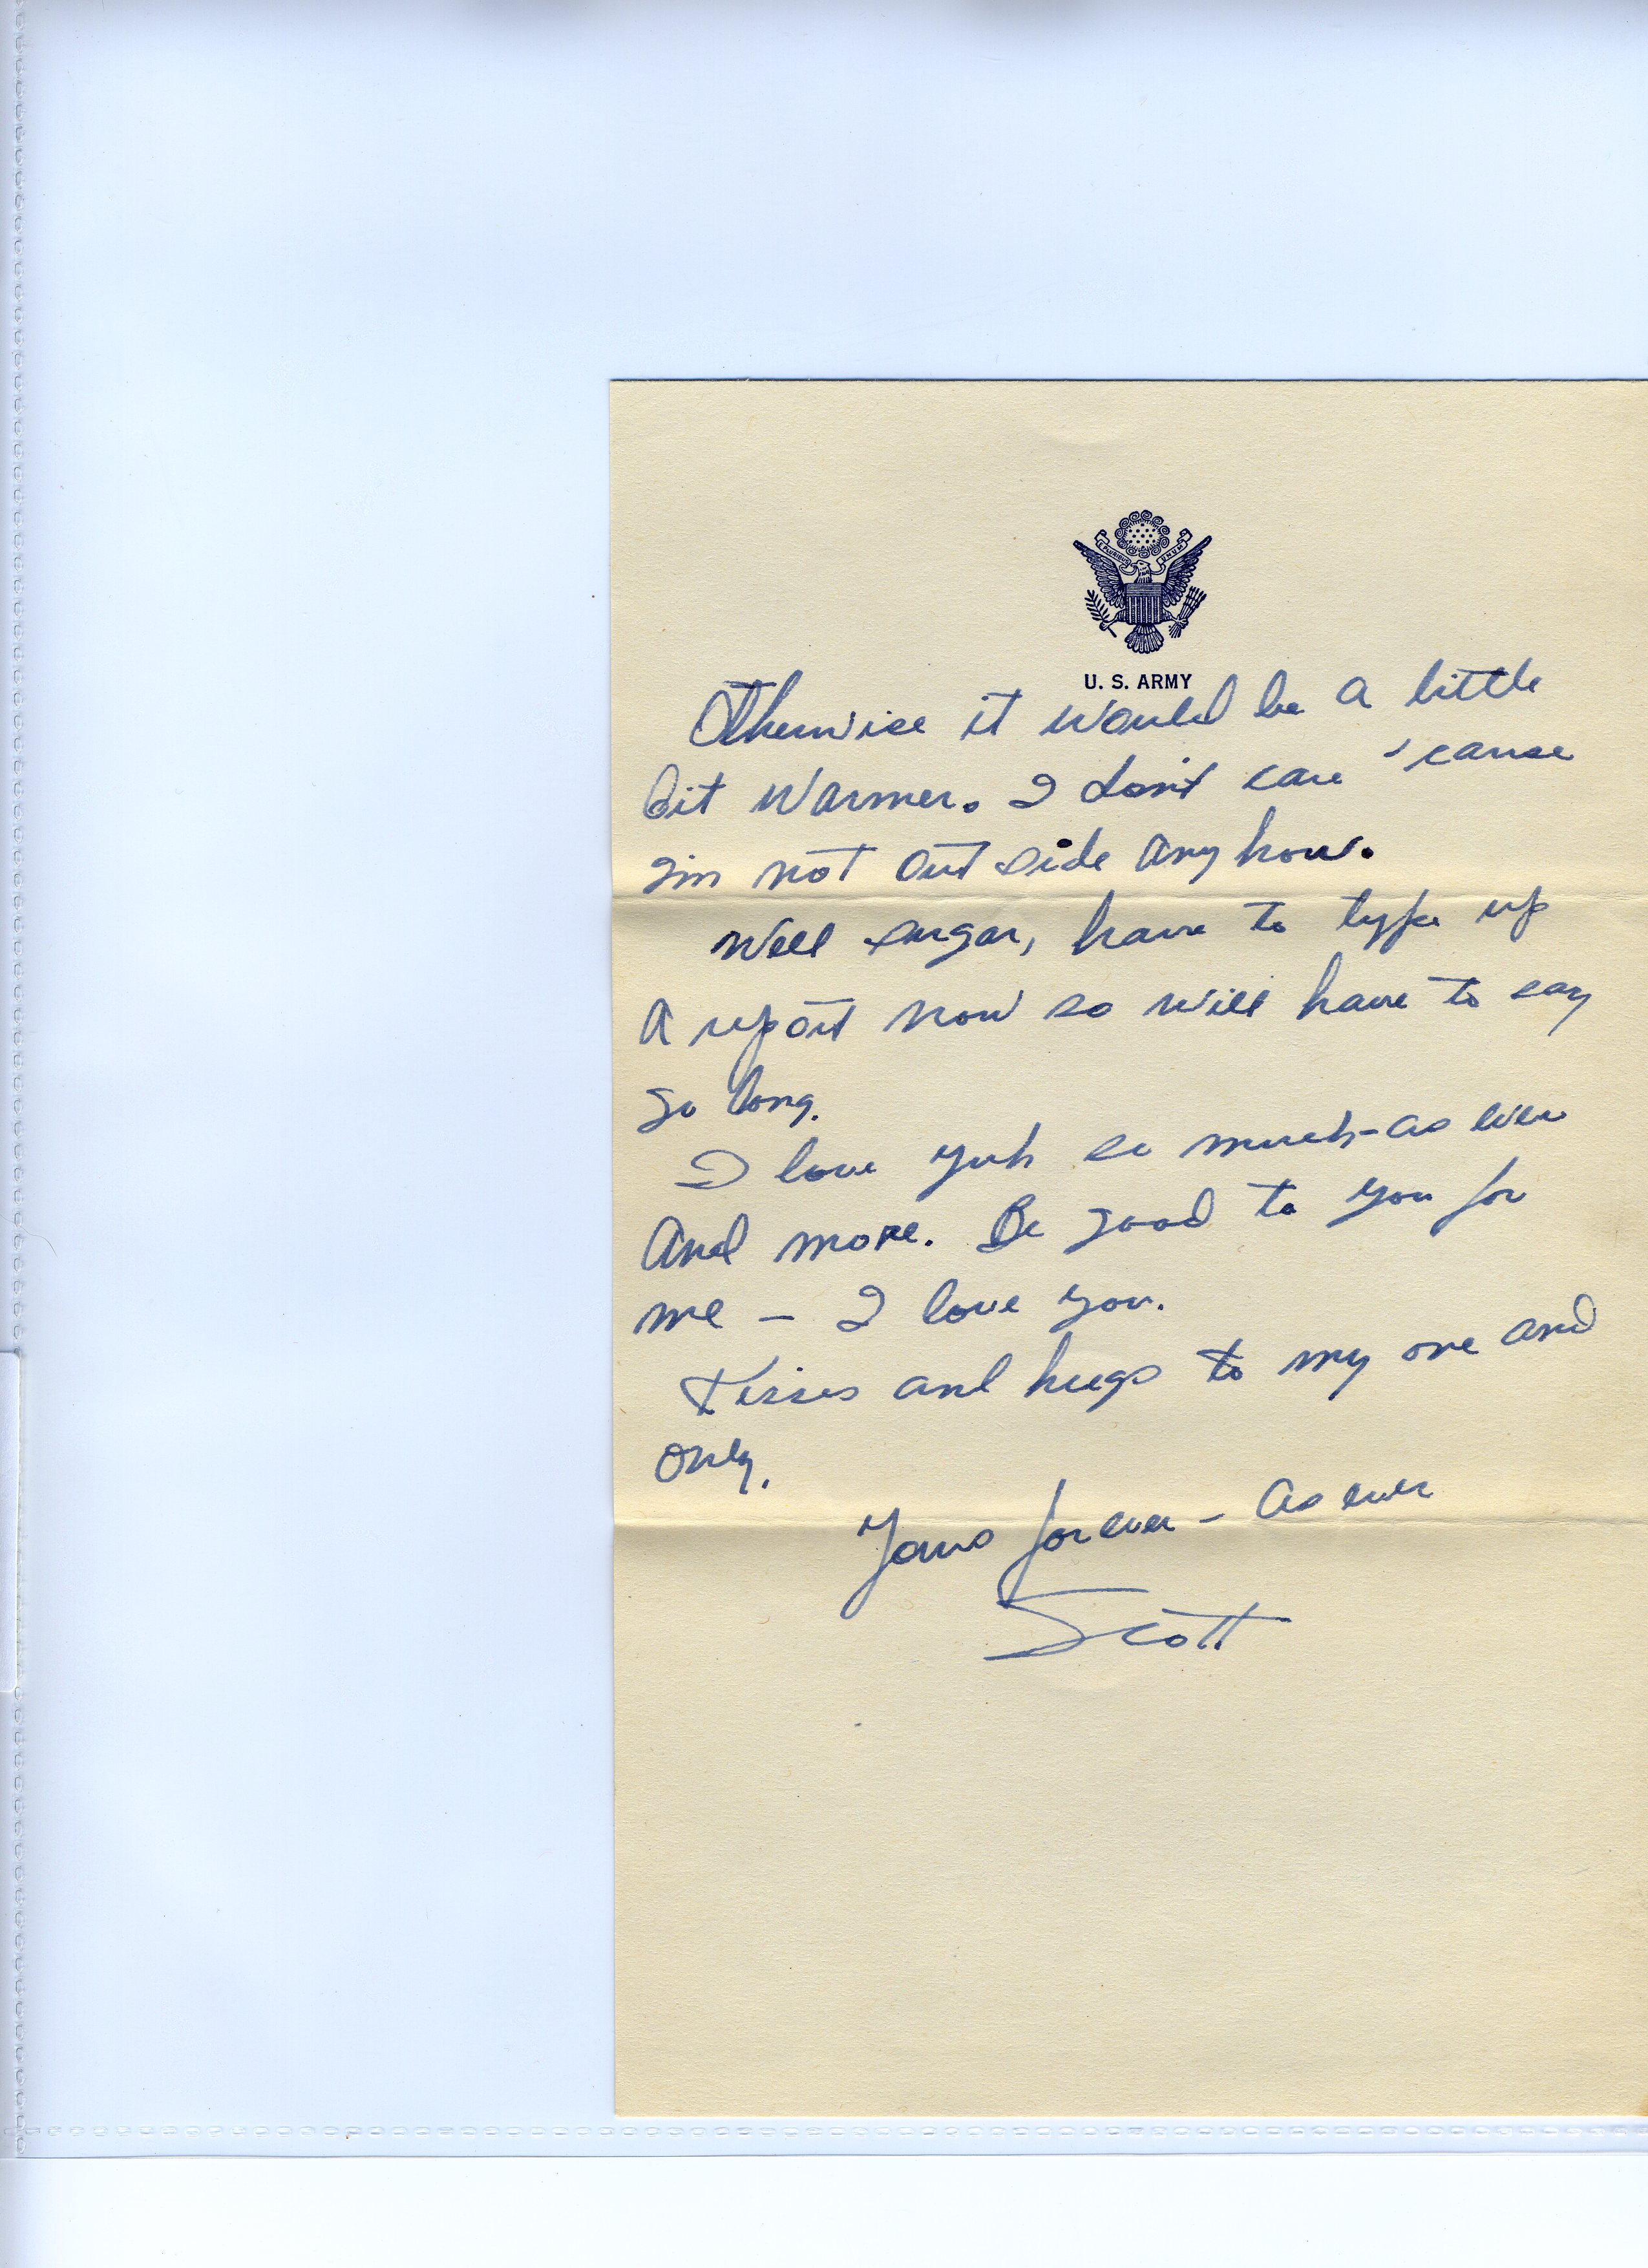 E PLURIBUS UNUM
U. S. ARMY
Otherwise it would be a little
bit warmer. I don't care 'cause
I'm not out side any how.
Well sugar, have to type up
a report now so will have to say
so long.
I love yuh so much - as ever
and more. Be good to you for
me - I love you.
Kisses and hugs to my one and
only.
Yours forever - as ever
Scott